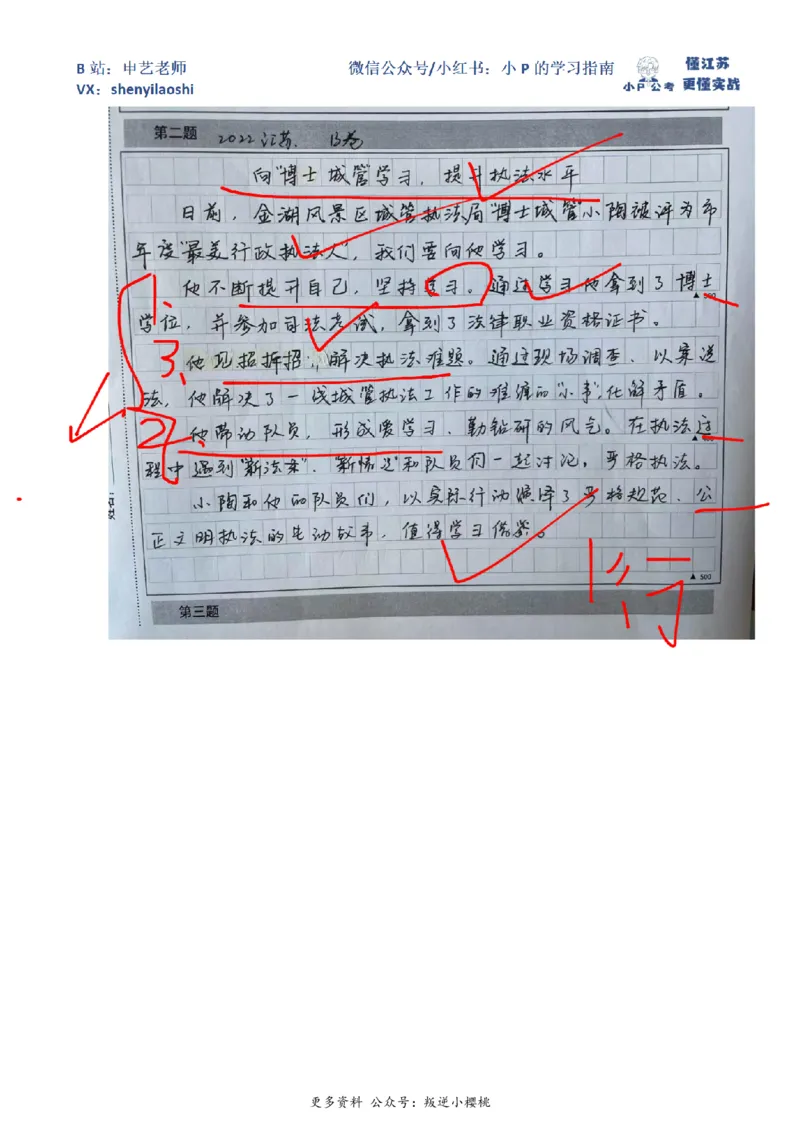 B 站：申艺老师
微信公众号/小红书：小 P 的学习指南
懂江苏
小P公考 更懂实战
VX：shenyilaoshi
第二题 2022江苏. B卷
向"博士城管学习，提升执法水平
日前，金湖风景区城管执法局"博士城管"小陶被评为市
年度"最美行政执法人"，我们要向他学习。
1、
他不断提升自己，坚持学习。通过学习他拿到了博士
▲ 300
学位，并参加司法考试，拿到了法律职业资格证书。
3、
他见招拆招，解决执法难题。通过现场调查、以案送
法，他解决了一线城管执法工作的难缠的"小事"，化解矛盾。
2、
他带动队员，形成爱学习、勤钻研的风气。在执法过
程中遇到"新法条"、"新情况"和队员们一起讨论，严格执法。
小陶和他的队员们，以实际行动演绎了严格规范、公
姓名：
正文明执法的生动故事，值得学习借鉴。
▲ 500
第三题
更多资料 公众号：叛逆小樱桃